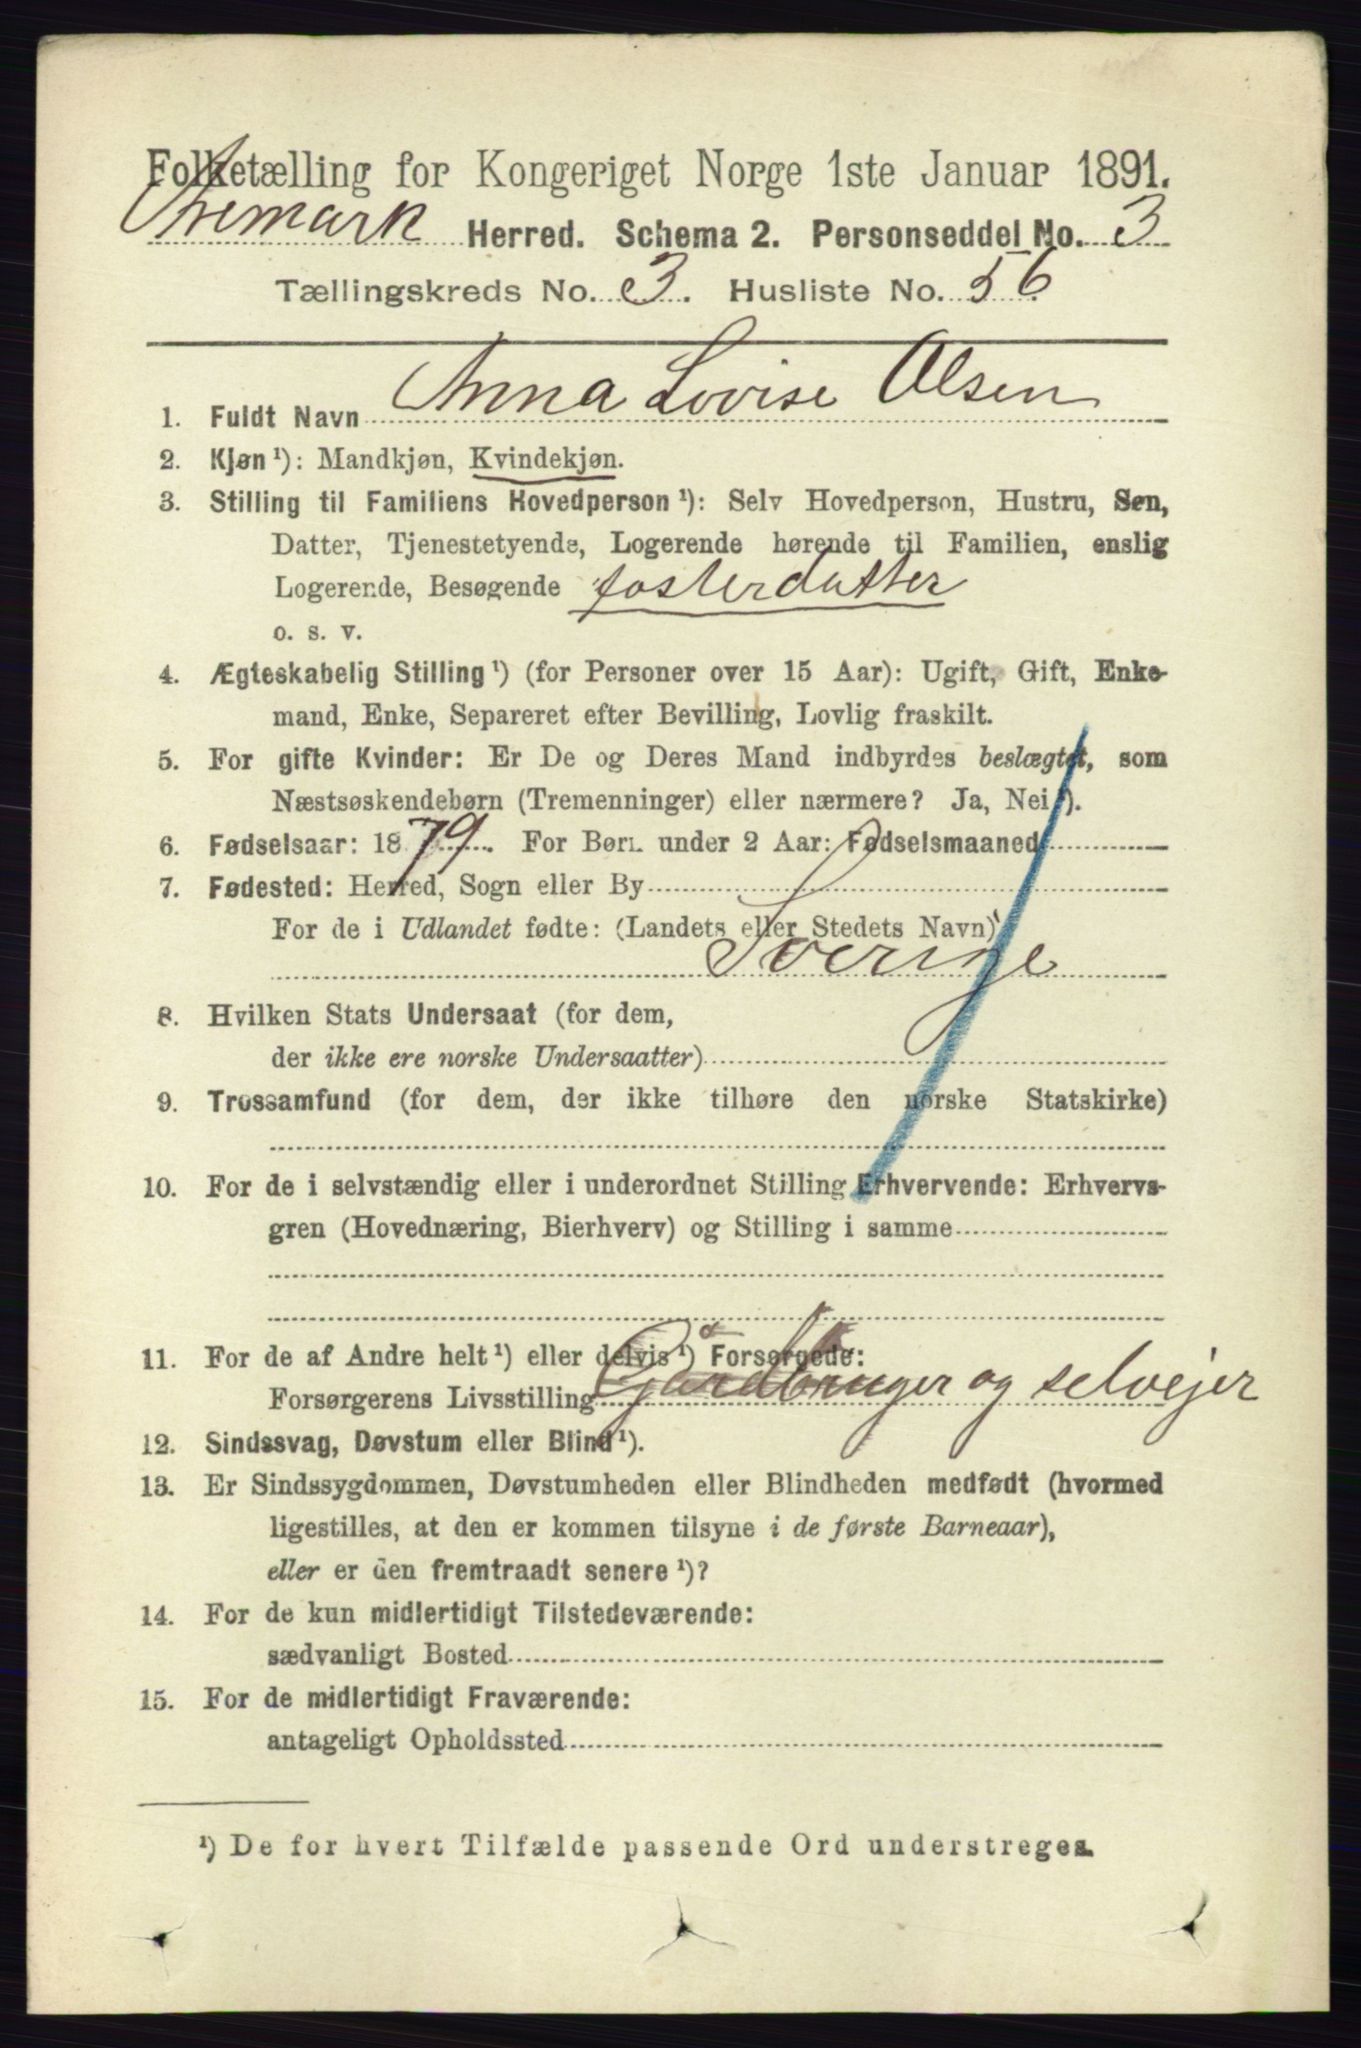 Folketælling for Kongeriget Norge 1ste Januar 1891.
Aremark Herred. Schema 2. Personseddel No. 3
Tællingskreds No. 3. Husliste No. 56
1. Fuldt Navn Anna Lovise Olsen
2. Kjøn¹): Mandkjøn, Kvindekjøn.
3. Stilling til Familiens Hovedperson¹): Selv Hovedperson, Hustru, Søn,
Datter, Tjenestetyende, Logerende hørende til Familien, enslig
Logerende, Besøgende fosterdatter
o. s. v.
4. Ægteskabelig Stilling¹) (for Personer over 15 Aar): Ugift, Gift, Enke-
mand, Enke, Separeret efter Bevilling, Lovlig fraskilt.
5. For gifte Kvinder: Er De og Deres Mand indbyrdes beslægtet, som
Næstsøskendebørn (Tremenninger) eller nærmere? Ja, Nei¹).
6. Fødselsaar: 1879. For Børn under 2 Aar: Fødselsmaaned
7. Fødested: Herred, Sogn eller By
For de i Udlandet fødte: (Landets eller Stedets Navn)
Sverige
8. Hvilken Stats Undersaat (for dem,
der ikke ere norske Undersaatter)
9. Trossamfund (for dem, der ikke tilhøre den norske Statskirke)
10. For de i selvstændig eller i underordnet Stilling Erhvervende: Erhvervs-
gren (Hovednæring, Bierhverv) og Stilling i samme
11. For de af Andre helt¹) eller delvis¹) Forsørgede:
Forsørgerens Livsstilling Gårdbruger og selvejer
12. Sindssvag, Døvstum eller Blind¹).
13. Er Sindssygdommen, Døvstumheden eller Blindheden medfødt (hvormed
ligestilles, at den er kommen tilsyne i de første Barneaar),
eller er den fremtraadt senere¹)?
14. For de kun midlertidigt Tilstedeværende:
sædvanligt Bosted
15. For de midlertidigt Fraværende:
antageligt Opholdssted
¹) De for hvert Tilfælde passende Ord understreges.